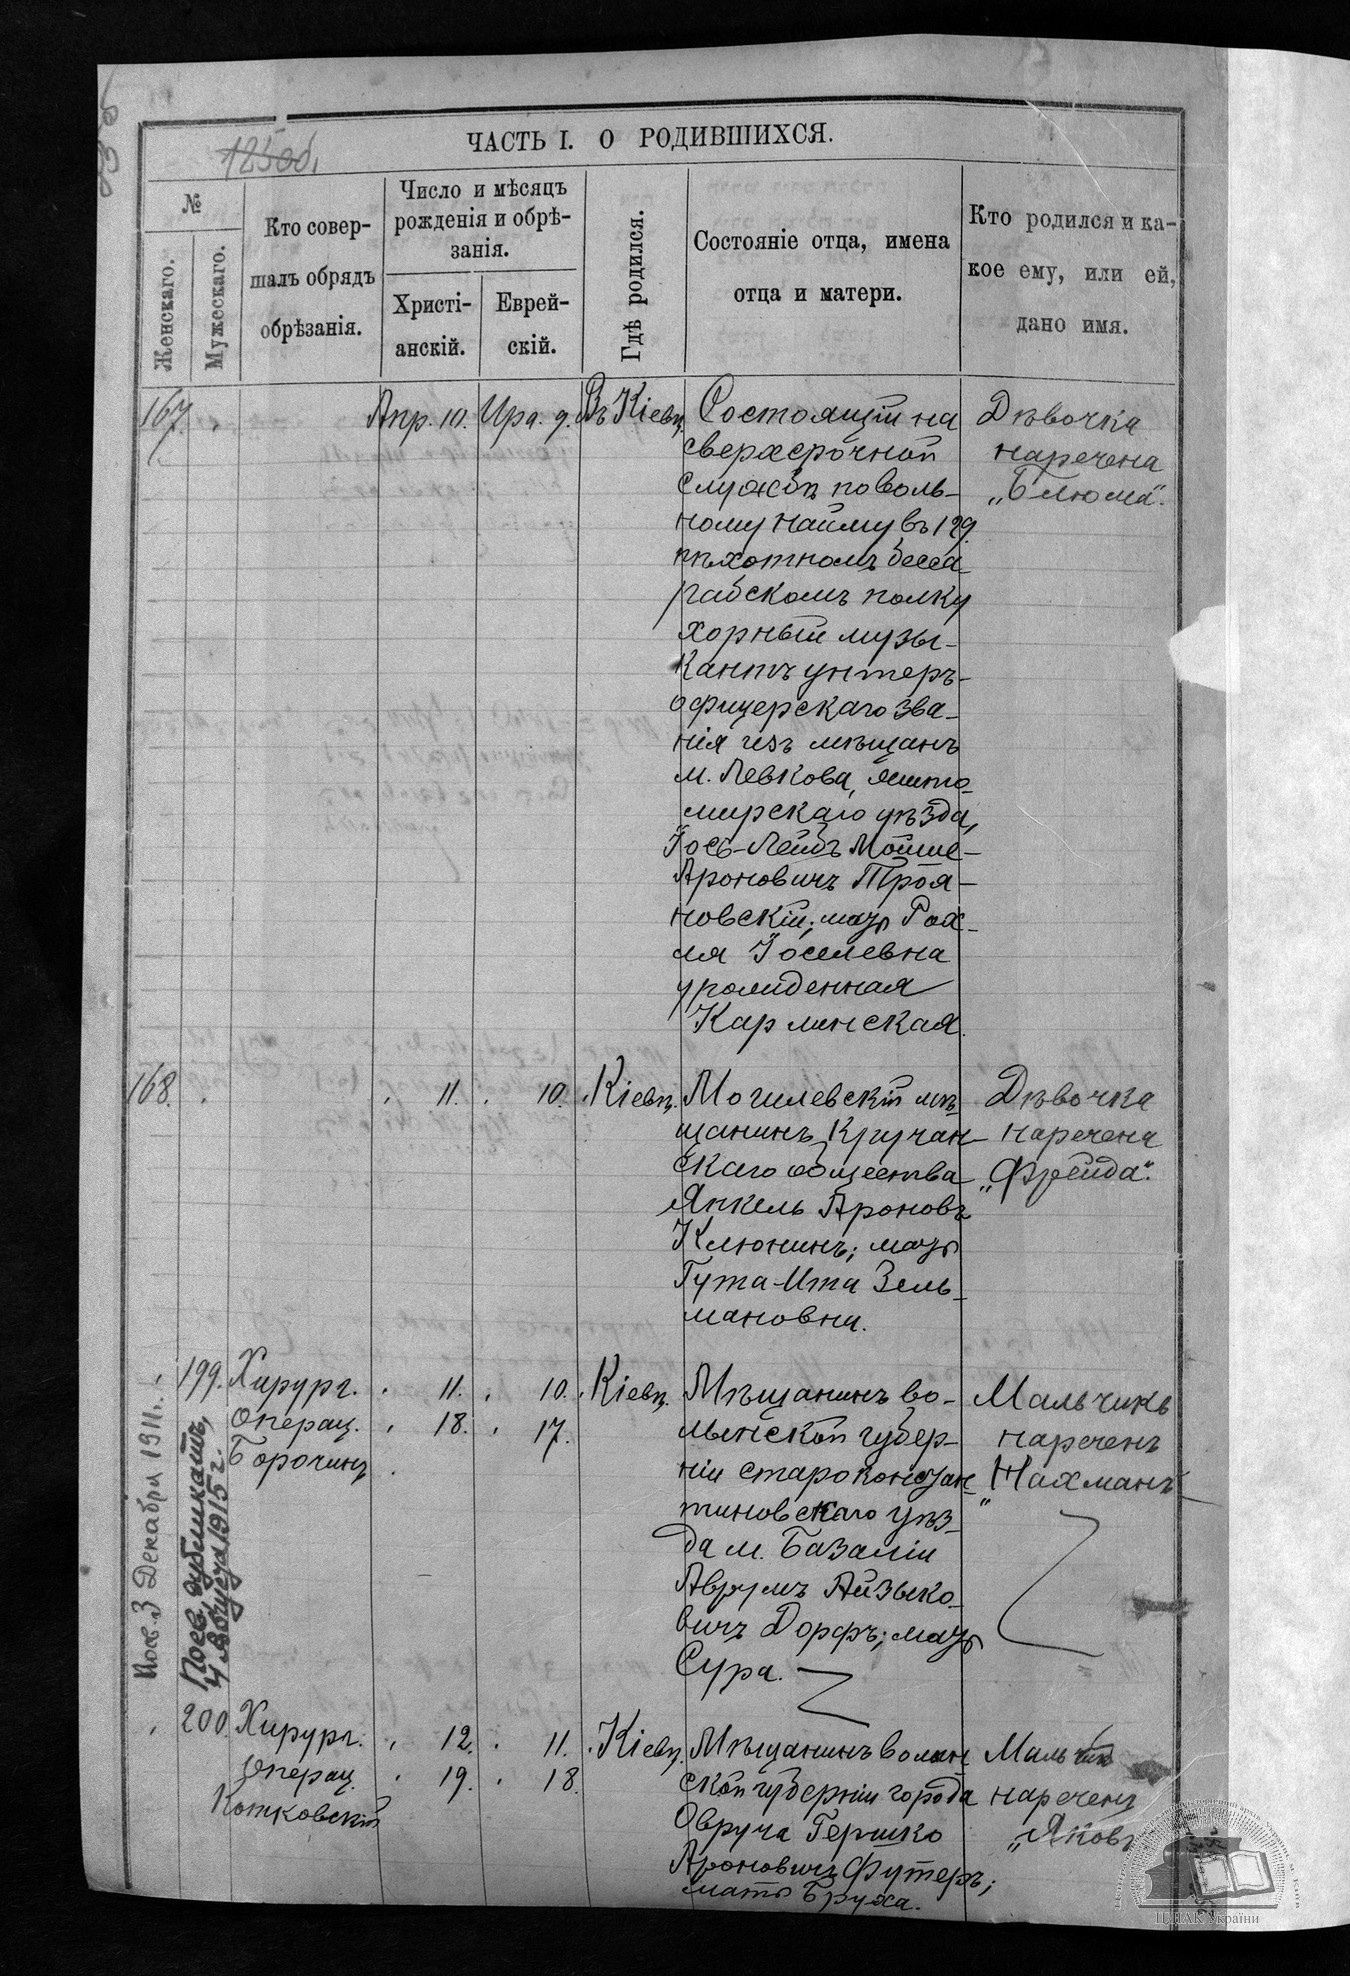 125об.
ЧАСТЬ I. О РОДИВШИХСЯ.
№
Женскаго.
Мужескаго.
Кто совер-
шалъ обрядъ
обрѣзанія.
Число и мѣсяцъ
рожденія и обрѣ-
занія.
Христі-
анскій.
Еврей-
скій.
Гдѣ родился.
Состояніе отца, имена
отца и матери.
Кто родился и ка-
кое ему, или ей,
дано имя.
167.
Апр. 10.
Ира. 9.
Въ Кіевѣ
Состоящій на
сверхсрочной
службѣ по воль-
ному найму въ 129.
пѣхотномъ Бесса
рабскомъ полку
хорный музы-
кантъ унтеръ-
офицерскаго зва-
нія изъ мѣщанъ
м. Левкова, Жито-
мирскаго уѣзда,
Іось-Лейбъ Мойше-
Ароновичъ Троя-
новскій; мать Рах-
ля Іоселевна
урожденная
Карлинская.
Дѣвочка
наречена
„Блюма“.
168.
11.
10.
Кіевѣ.
Могилевскій мѣ
щанинъ Кручан-
скаго общества
Янкель Ароновъ
Клюнинъ; мать
Гута-Ита Зель-
мановна.
Дѣвочка
наречена
„Фрейда“.
199.
Хирург.
Операц.
Борочинъ
11.
18.
10.
17.
Кіевѣ.
Мѣщанинъ во-
лынской губер-
ніи староконстан-
тиновскаго уѣз-
да м. Базаліи
Аврумъ Айзыко-
вичъ Дорфъ; мать
Сура.
Мальчикъ
нареченъ
„Нахманъ“
Пос. 3 Декабря 1911 г.
4 1915 г.
200.
Хирург.
Операц.
Котковскій
12.
19.
11.
18.
Кіевѣ.
Мѣщанинъ волын
ской губерніи города
Овруча Гершко
Ароновичъ Футеръ;
мать Бруха.
Мальчик
нареченъ
„Яковъ
ЦДІАК України